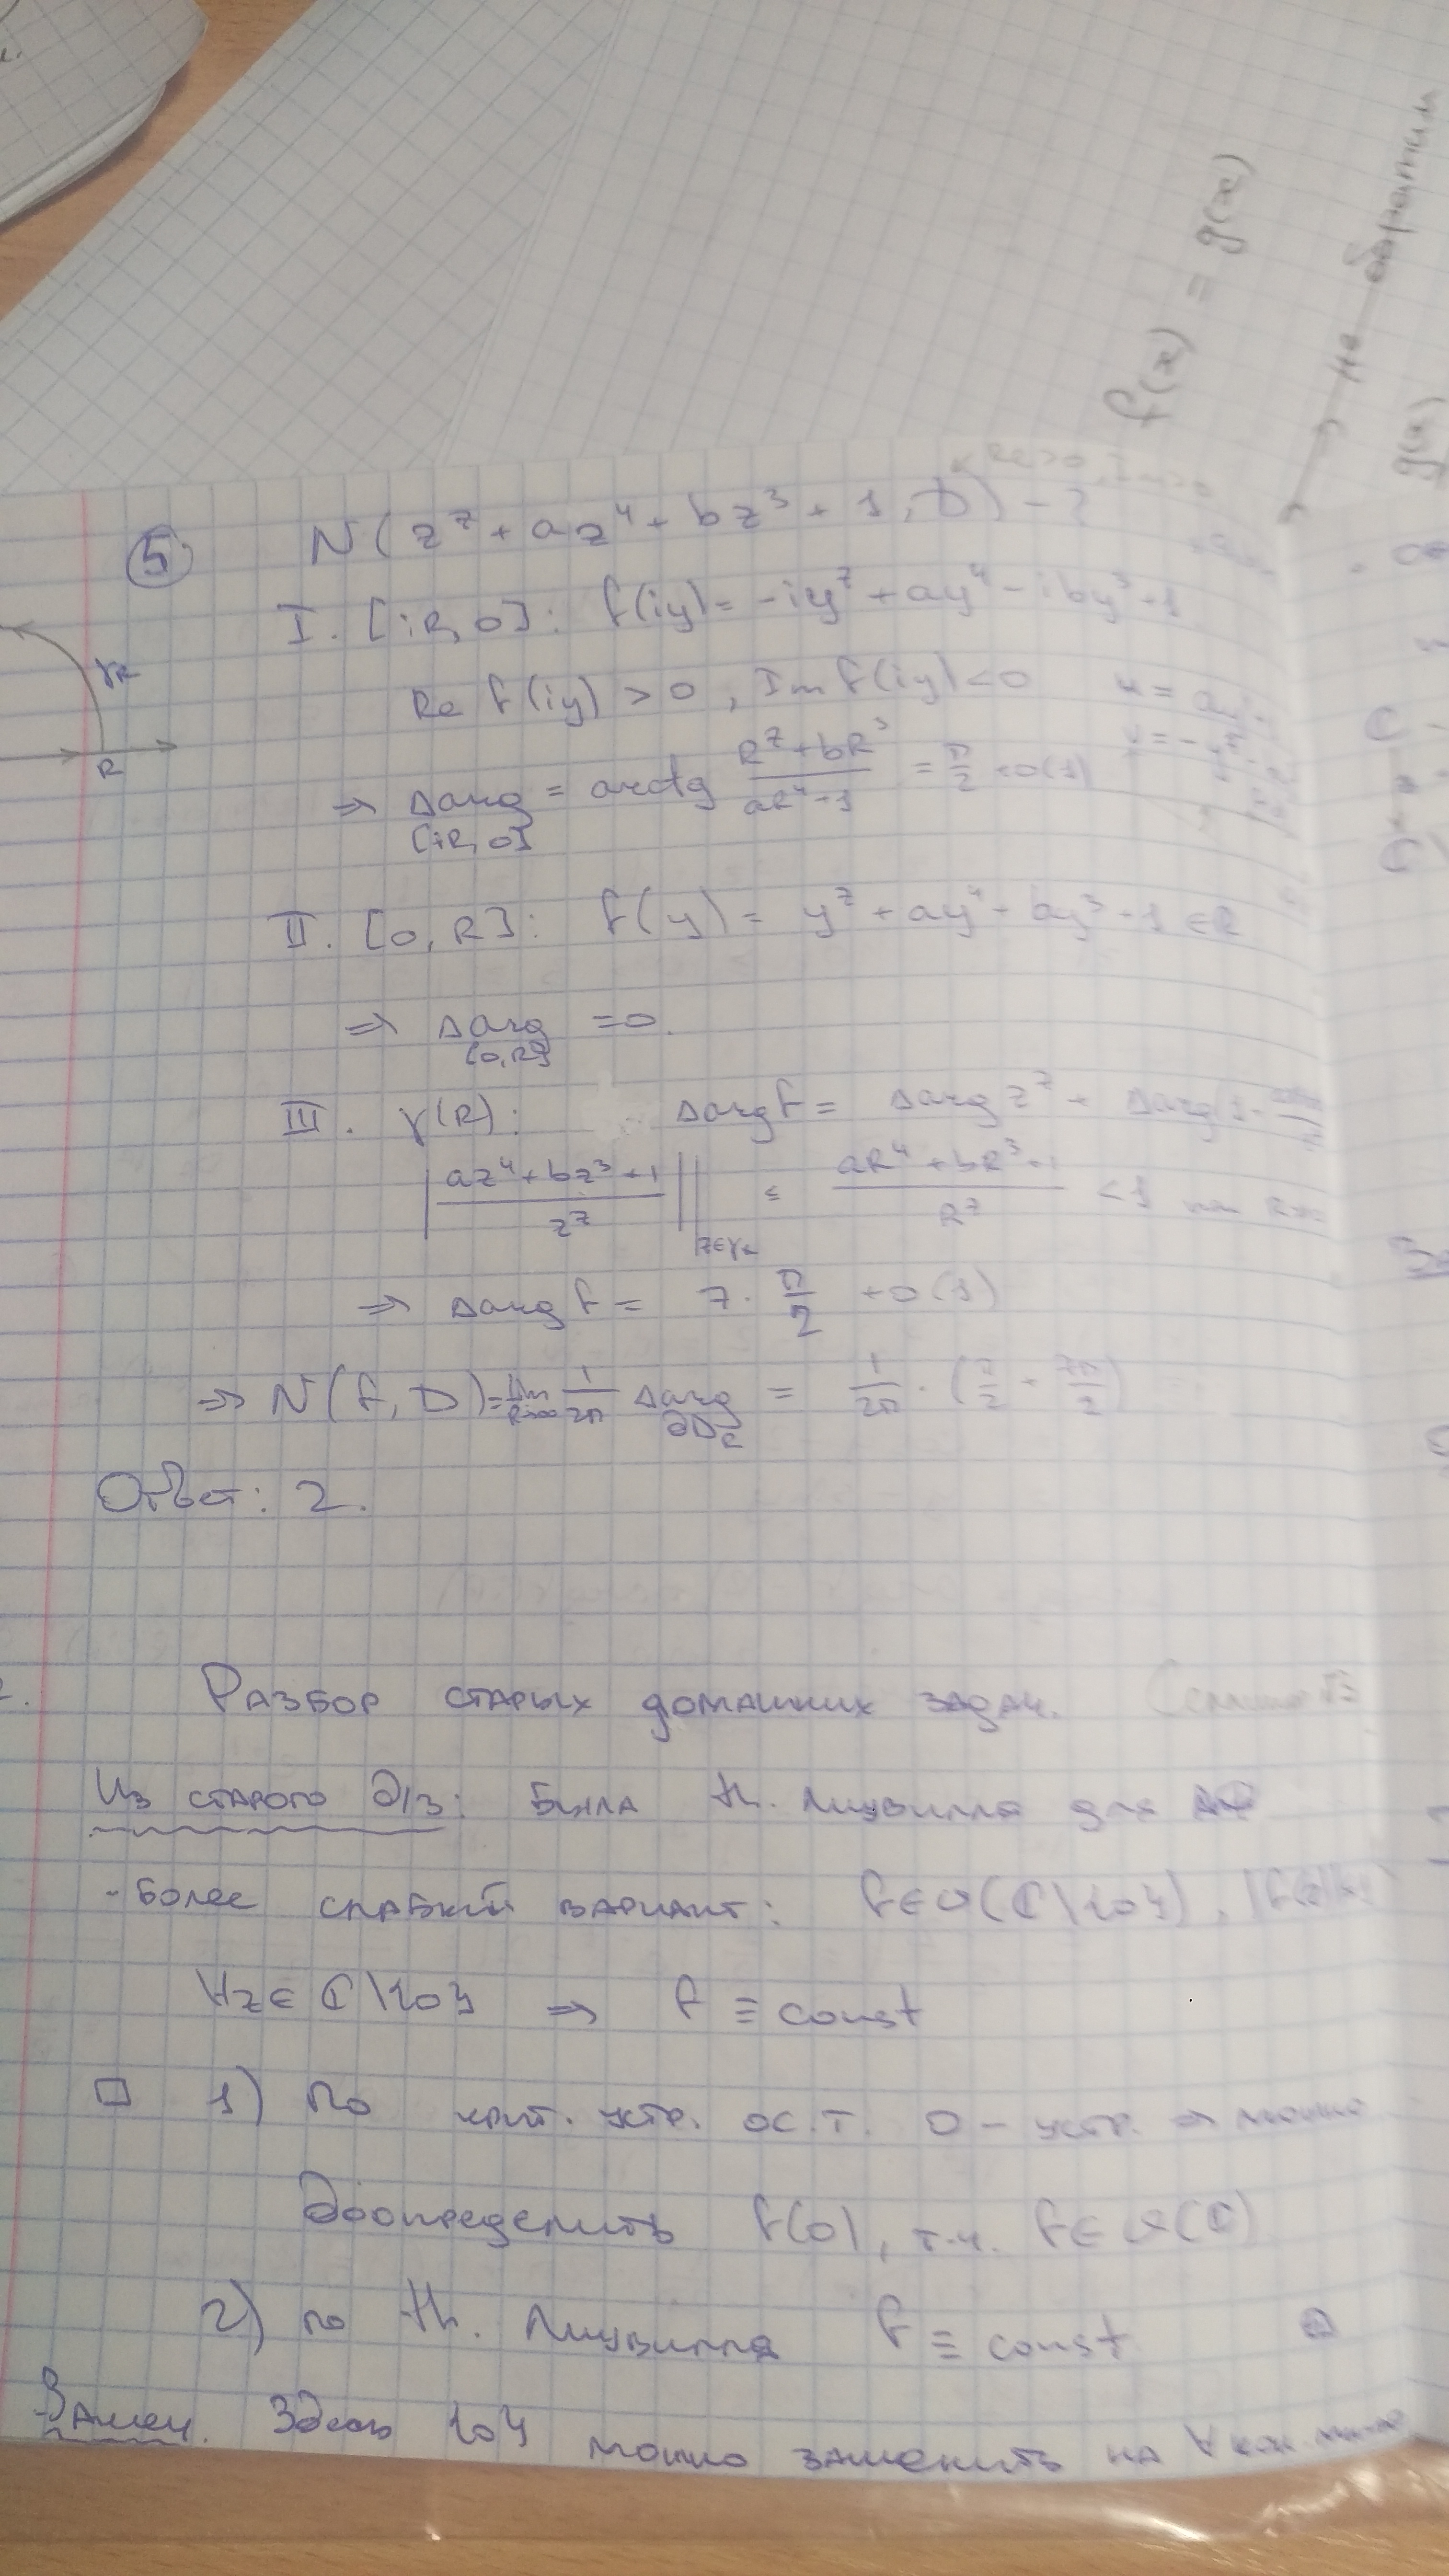 f(x) = g(x)
→ не обратим
g(x)
Re>0, Im>0
⑤ N(z⁷ + az⁴ + bz³ + 1, D) - ?
I. [iR, 0]: f(iy) = -iy⁷ + ay⁴ - iby³ + 1
γR
Re f(iy) > 0, Im f(iy) < 0
R
⇒ Δarg = arctg (R⁷ + bR³)/(aR⁴+1) = π/2 + o(1)
[iR, 0]
II. [0, R]: f(y) = y⁷ + ay⁴ + by³ + 1 ∈ R
⇒ Δarg = 0.
[0, R]
III. γ(R): Δarg f = Δarg z⁷ + Δarg
|(az⁴ + bz³ + 1)/z⁷| |z∈γR ≤ (aR⁴ + bR³ + 1)/R⁷ < 1
⇒ Δarg f = 7 · π/2 + o(1)
⇒ N(f, D) = lim R→∞ 1/2π Δarg ∂D_R = 1/2π · (π/2 + 7π/2)
Ответ: 2.
Разбор старых домашних задач.
Из старого д/з: Была th. Лиувилля для
- Более слабый вариант: f ∈ O(ℂ\{0}),
∀z ∈ ℂ\{0} ⇒ f ≡ const
□ 1) По крит. устр. ос. т. 0 - устр. ⇒ можно
доопределить f(0), т.ч. f ∈ O(ℂ)
2) по th. Лиувилля f ≡ const
Замеч. Здесь {0} можно заменить на ∀ кон.